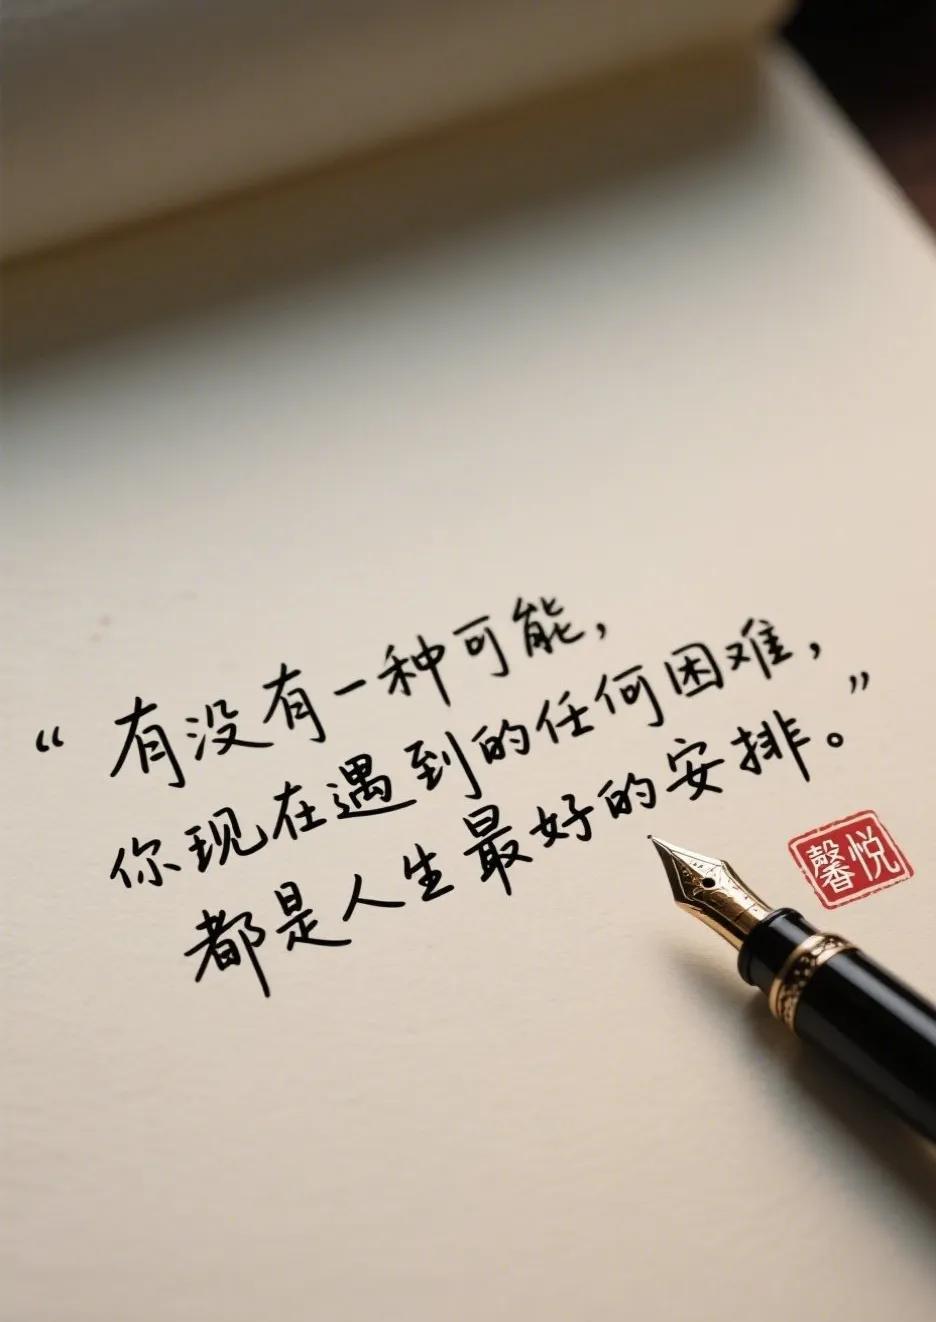 “有没有一种可能，
你现在遇到的任何困难，
都是人生最好的安排。”
馨悦